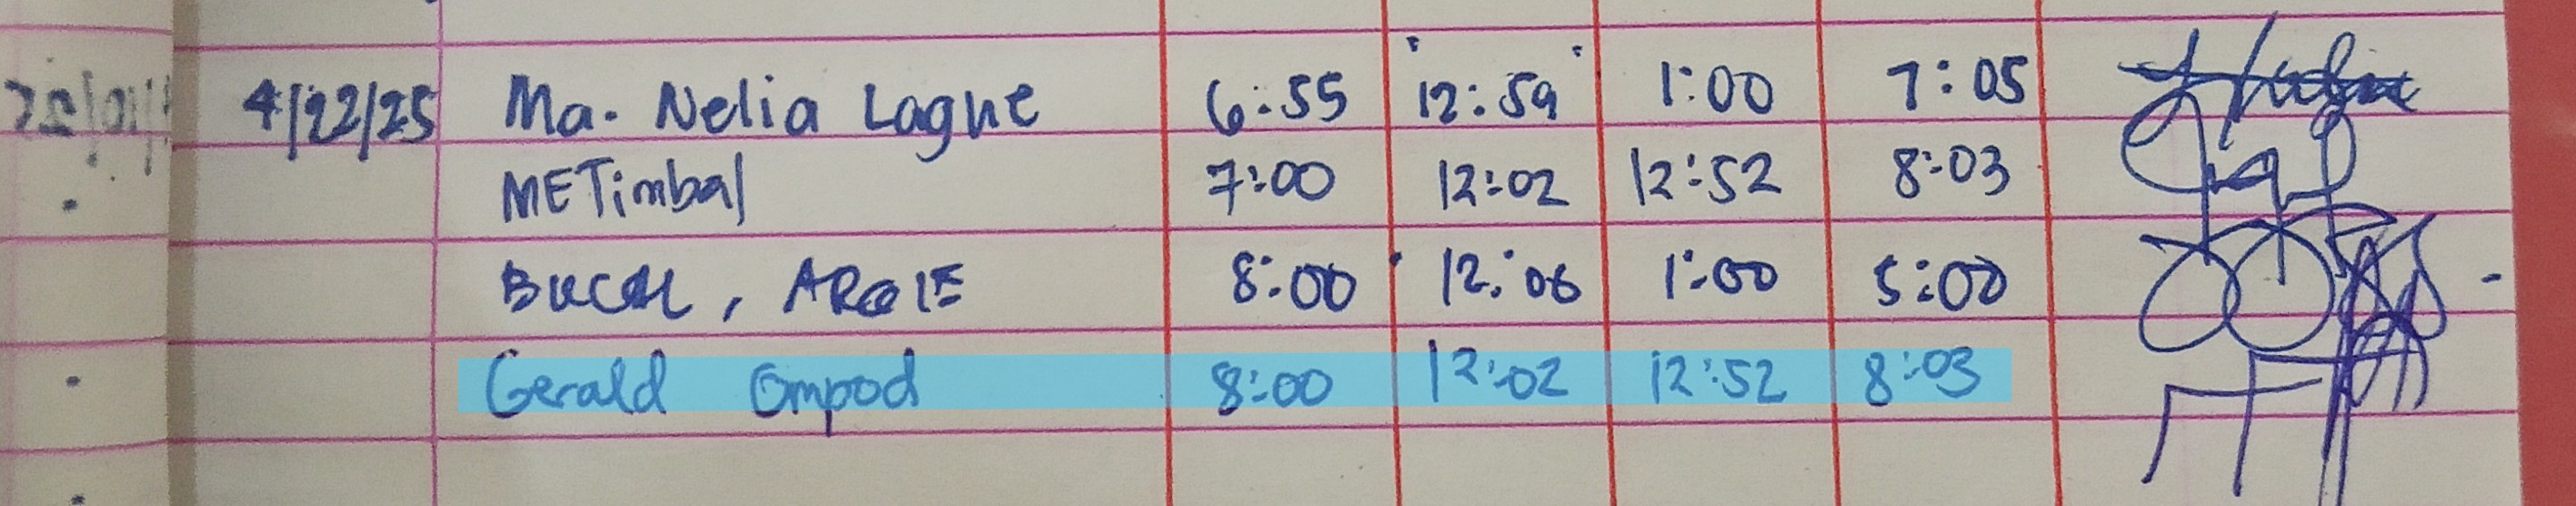 4/22/25 Ma. Nelia Lague 6:55 12:59 1:00 7:05
METimbal 7:00 12:02 12:52 8:03
8:00 12:06 1:00 5:00
Gerald Ompod 8:00 12:02 12:52 8:03